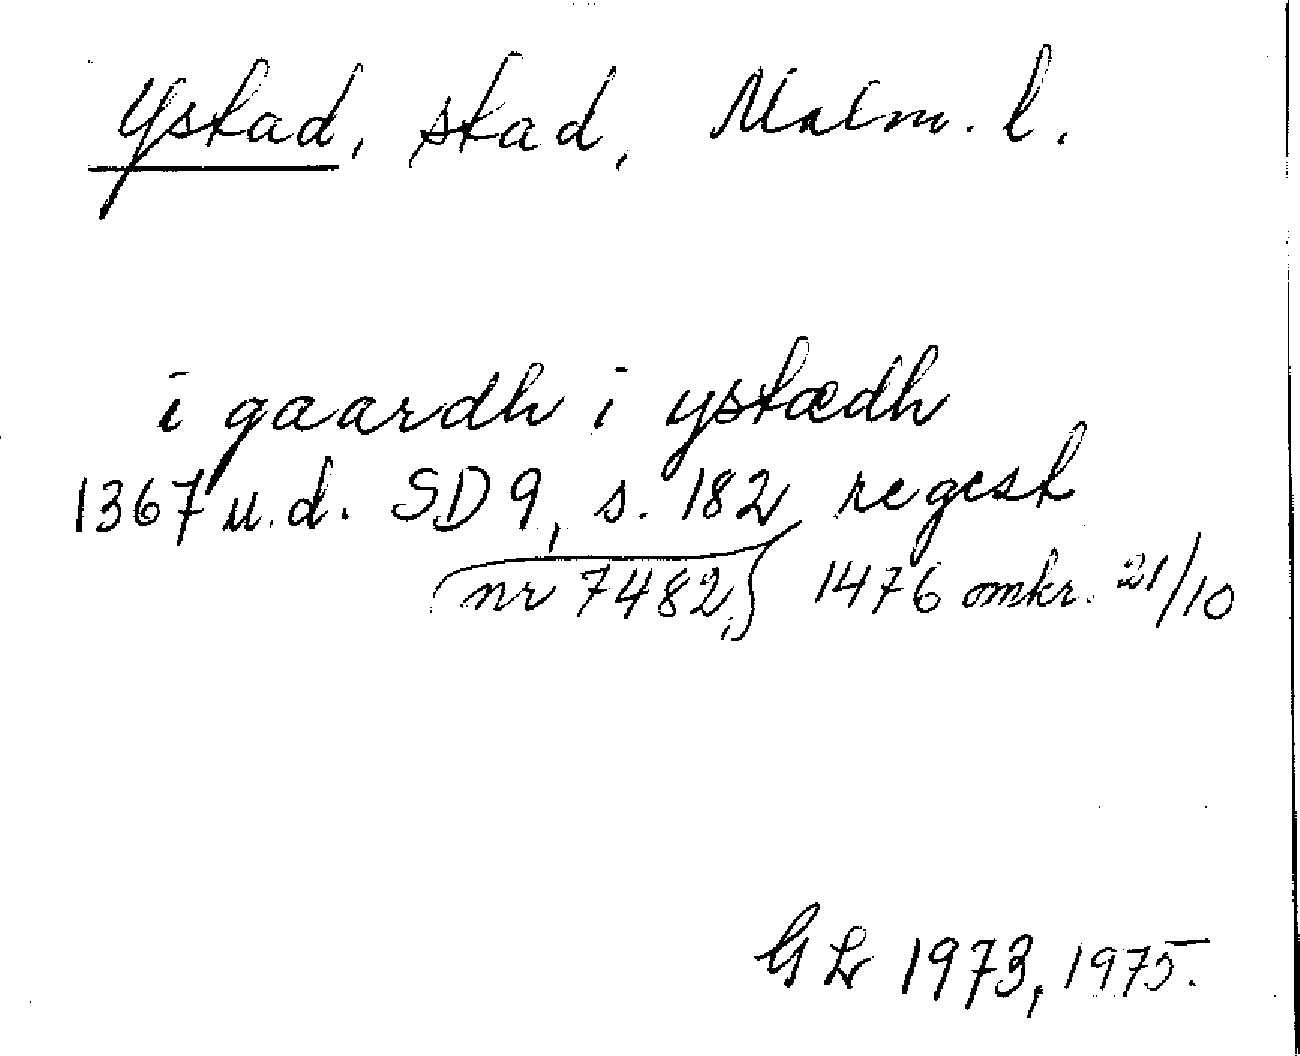 Ystad, stad, Malm. l.
i gaardh i ystædh
1367 u.d. SD 9, s. 182 regest
nr 7482, 1476 omkr. 21/10
GL 1973, 1975.